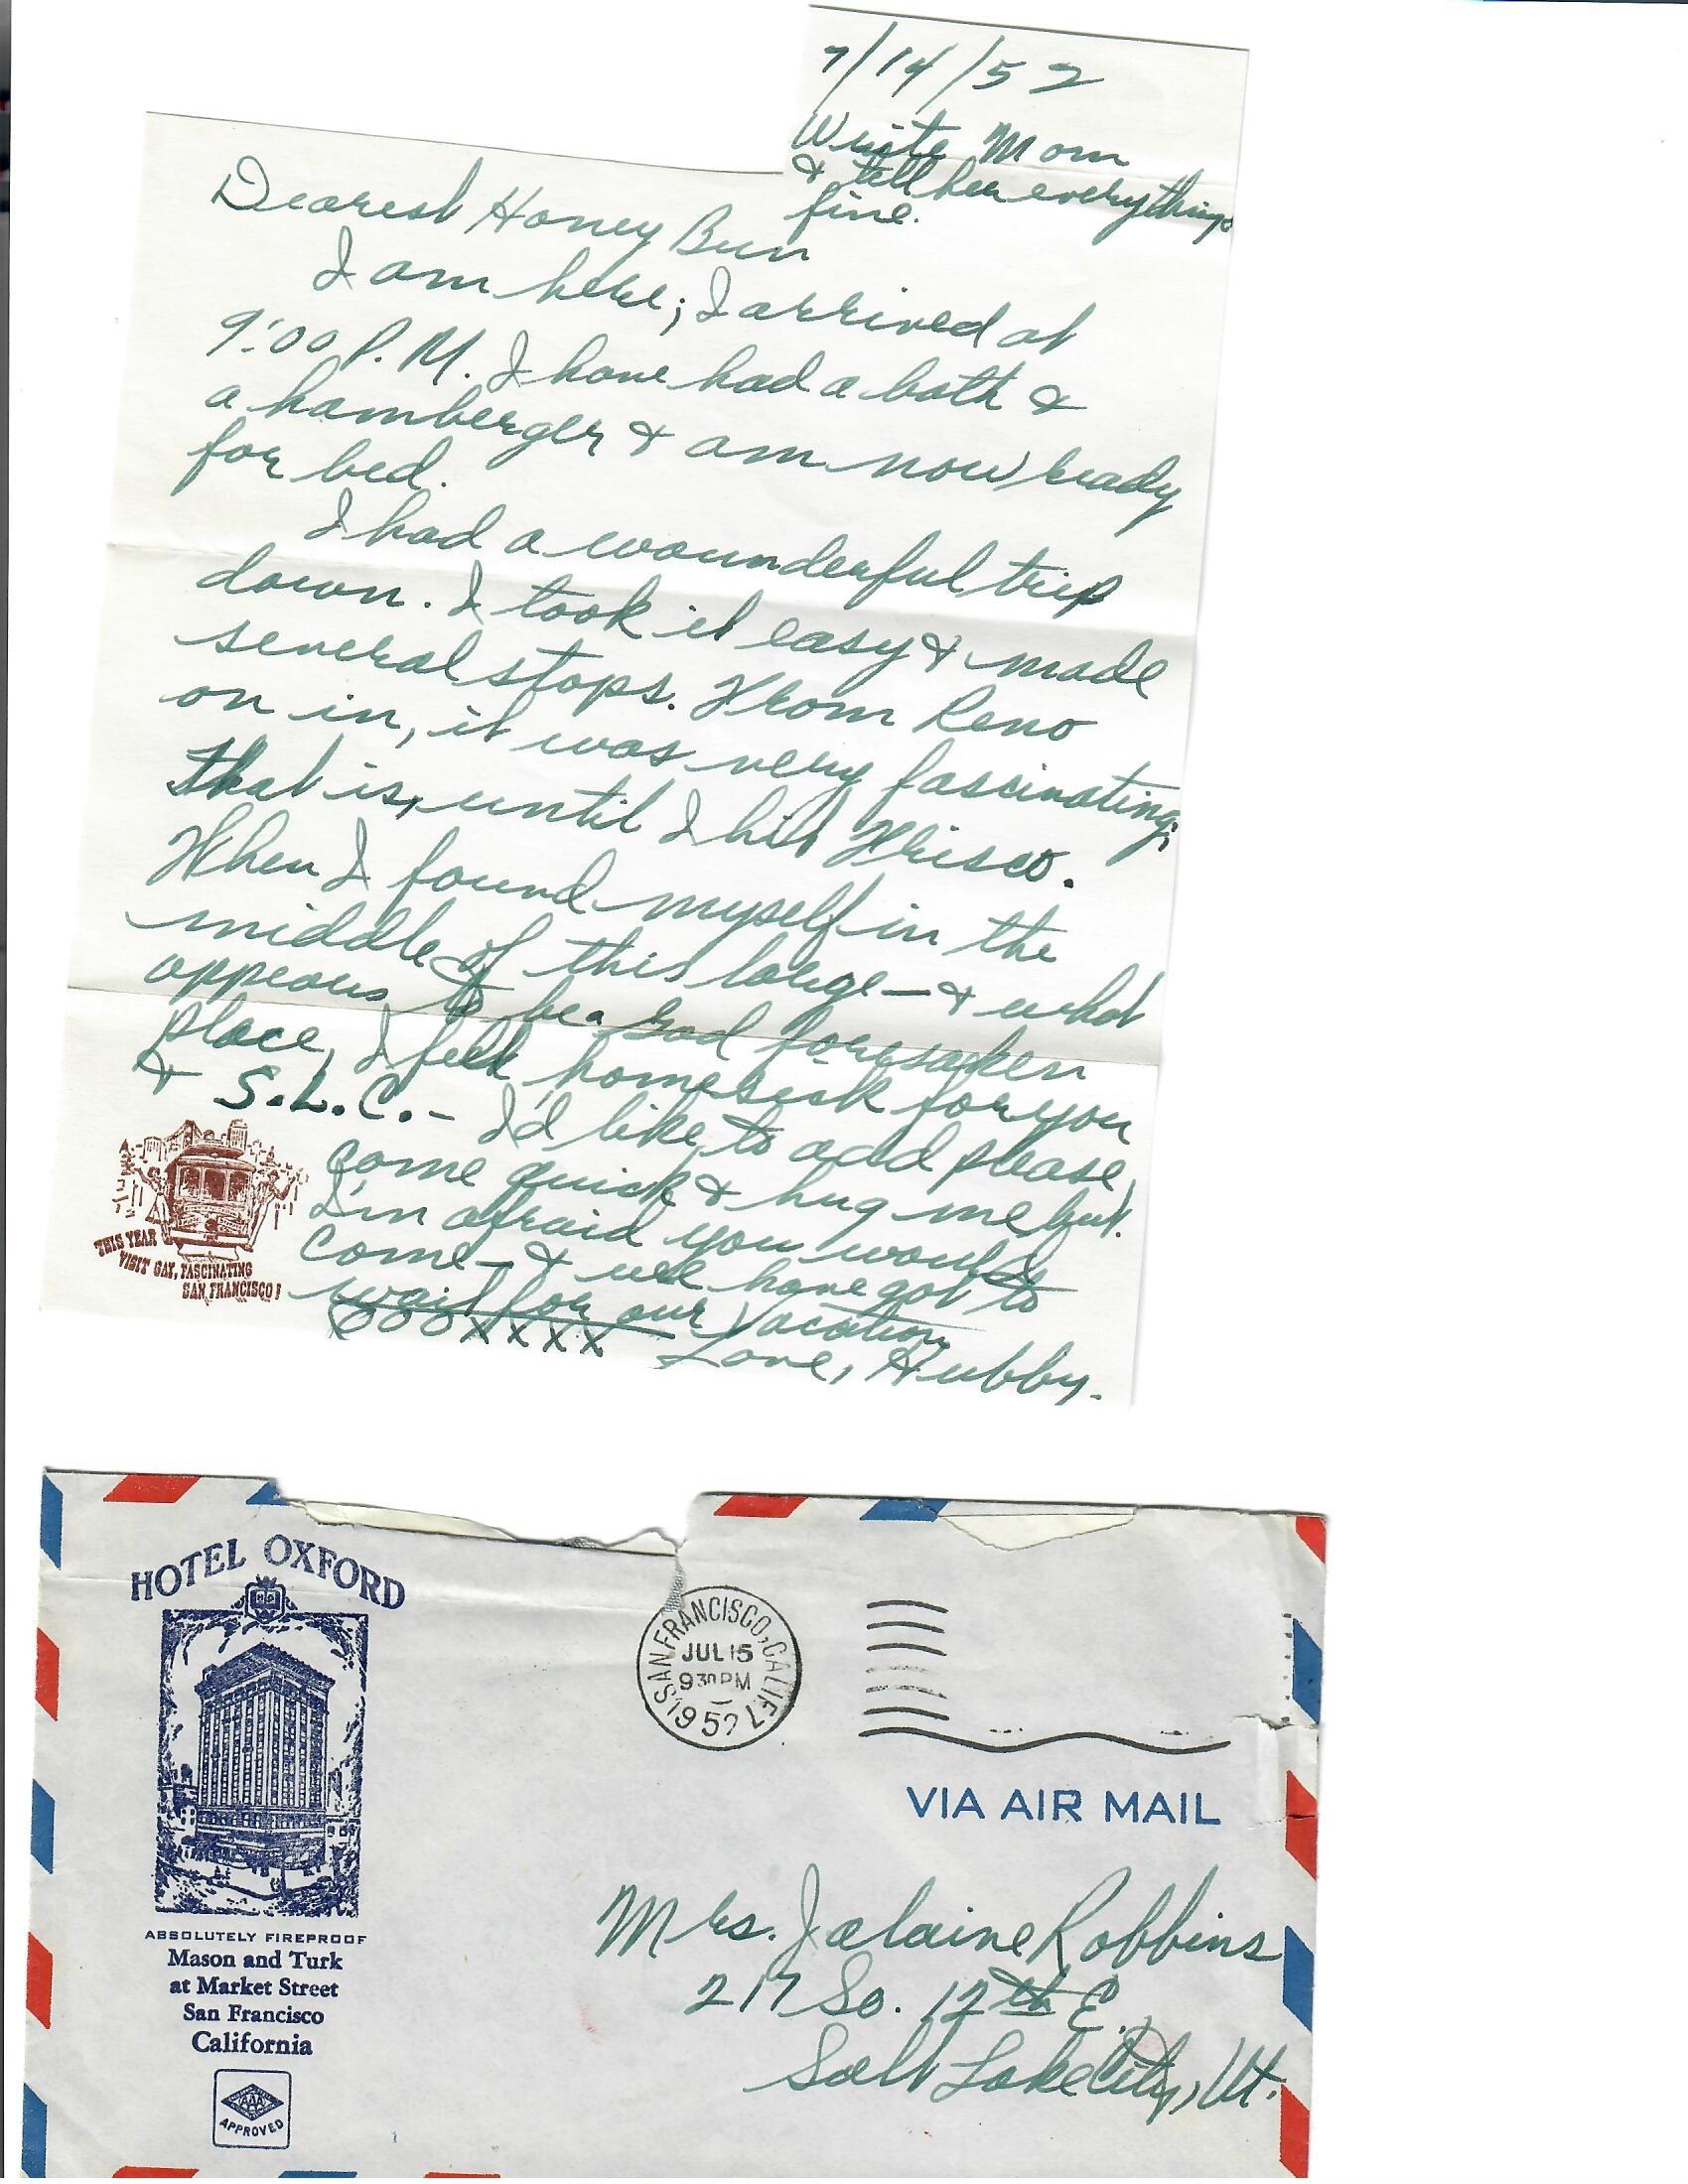 7/14/52
Write Mom
& tell her everythings
fine.
Dearest Honey Bun
I am here; I arrived at
9:00 P.M. I have had a bath &
a hamberger & am now ready
for bed.
I had a wounderful trip
down. I took it easy & made
several stops. From Reno
on in, it was very fascinating;
that is, until I hit Frisco.
When I found myself in the
middle of this large — & what
appears to be a God foresaken
place, I felt homesick for you
& S.L.C. - I'd like to add please,
come quick & hug me but
I'm afraid you would
come - & we have got to
wait for our vacation
OOOXXXX Love, Hubby.
THIS YEAR
VISIT GAY, FASCINATING
SAN FRANCISCO!
HOTEL OXFORD
SAN FRANCISCO, CALIF.
JUL 15
9 30 PM
1952
VIA AIR MAIL
ABSOLUTELY FIREPROOF
Mason and Turk
at Market Street
San Francisco
California
AAA
APPROVED
Mrs. Jalaine Robbins
217 So. 12th E.
Salt Lake City, Ut.